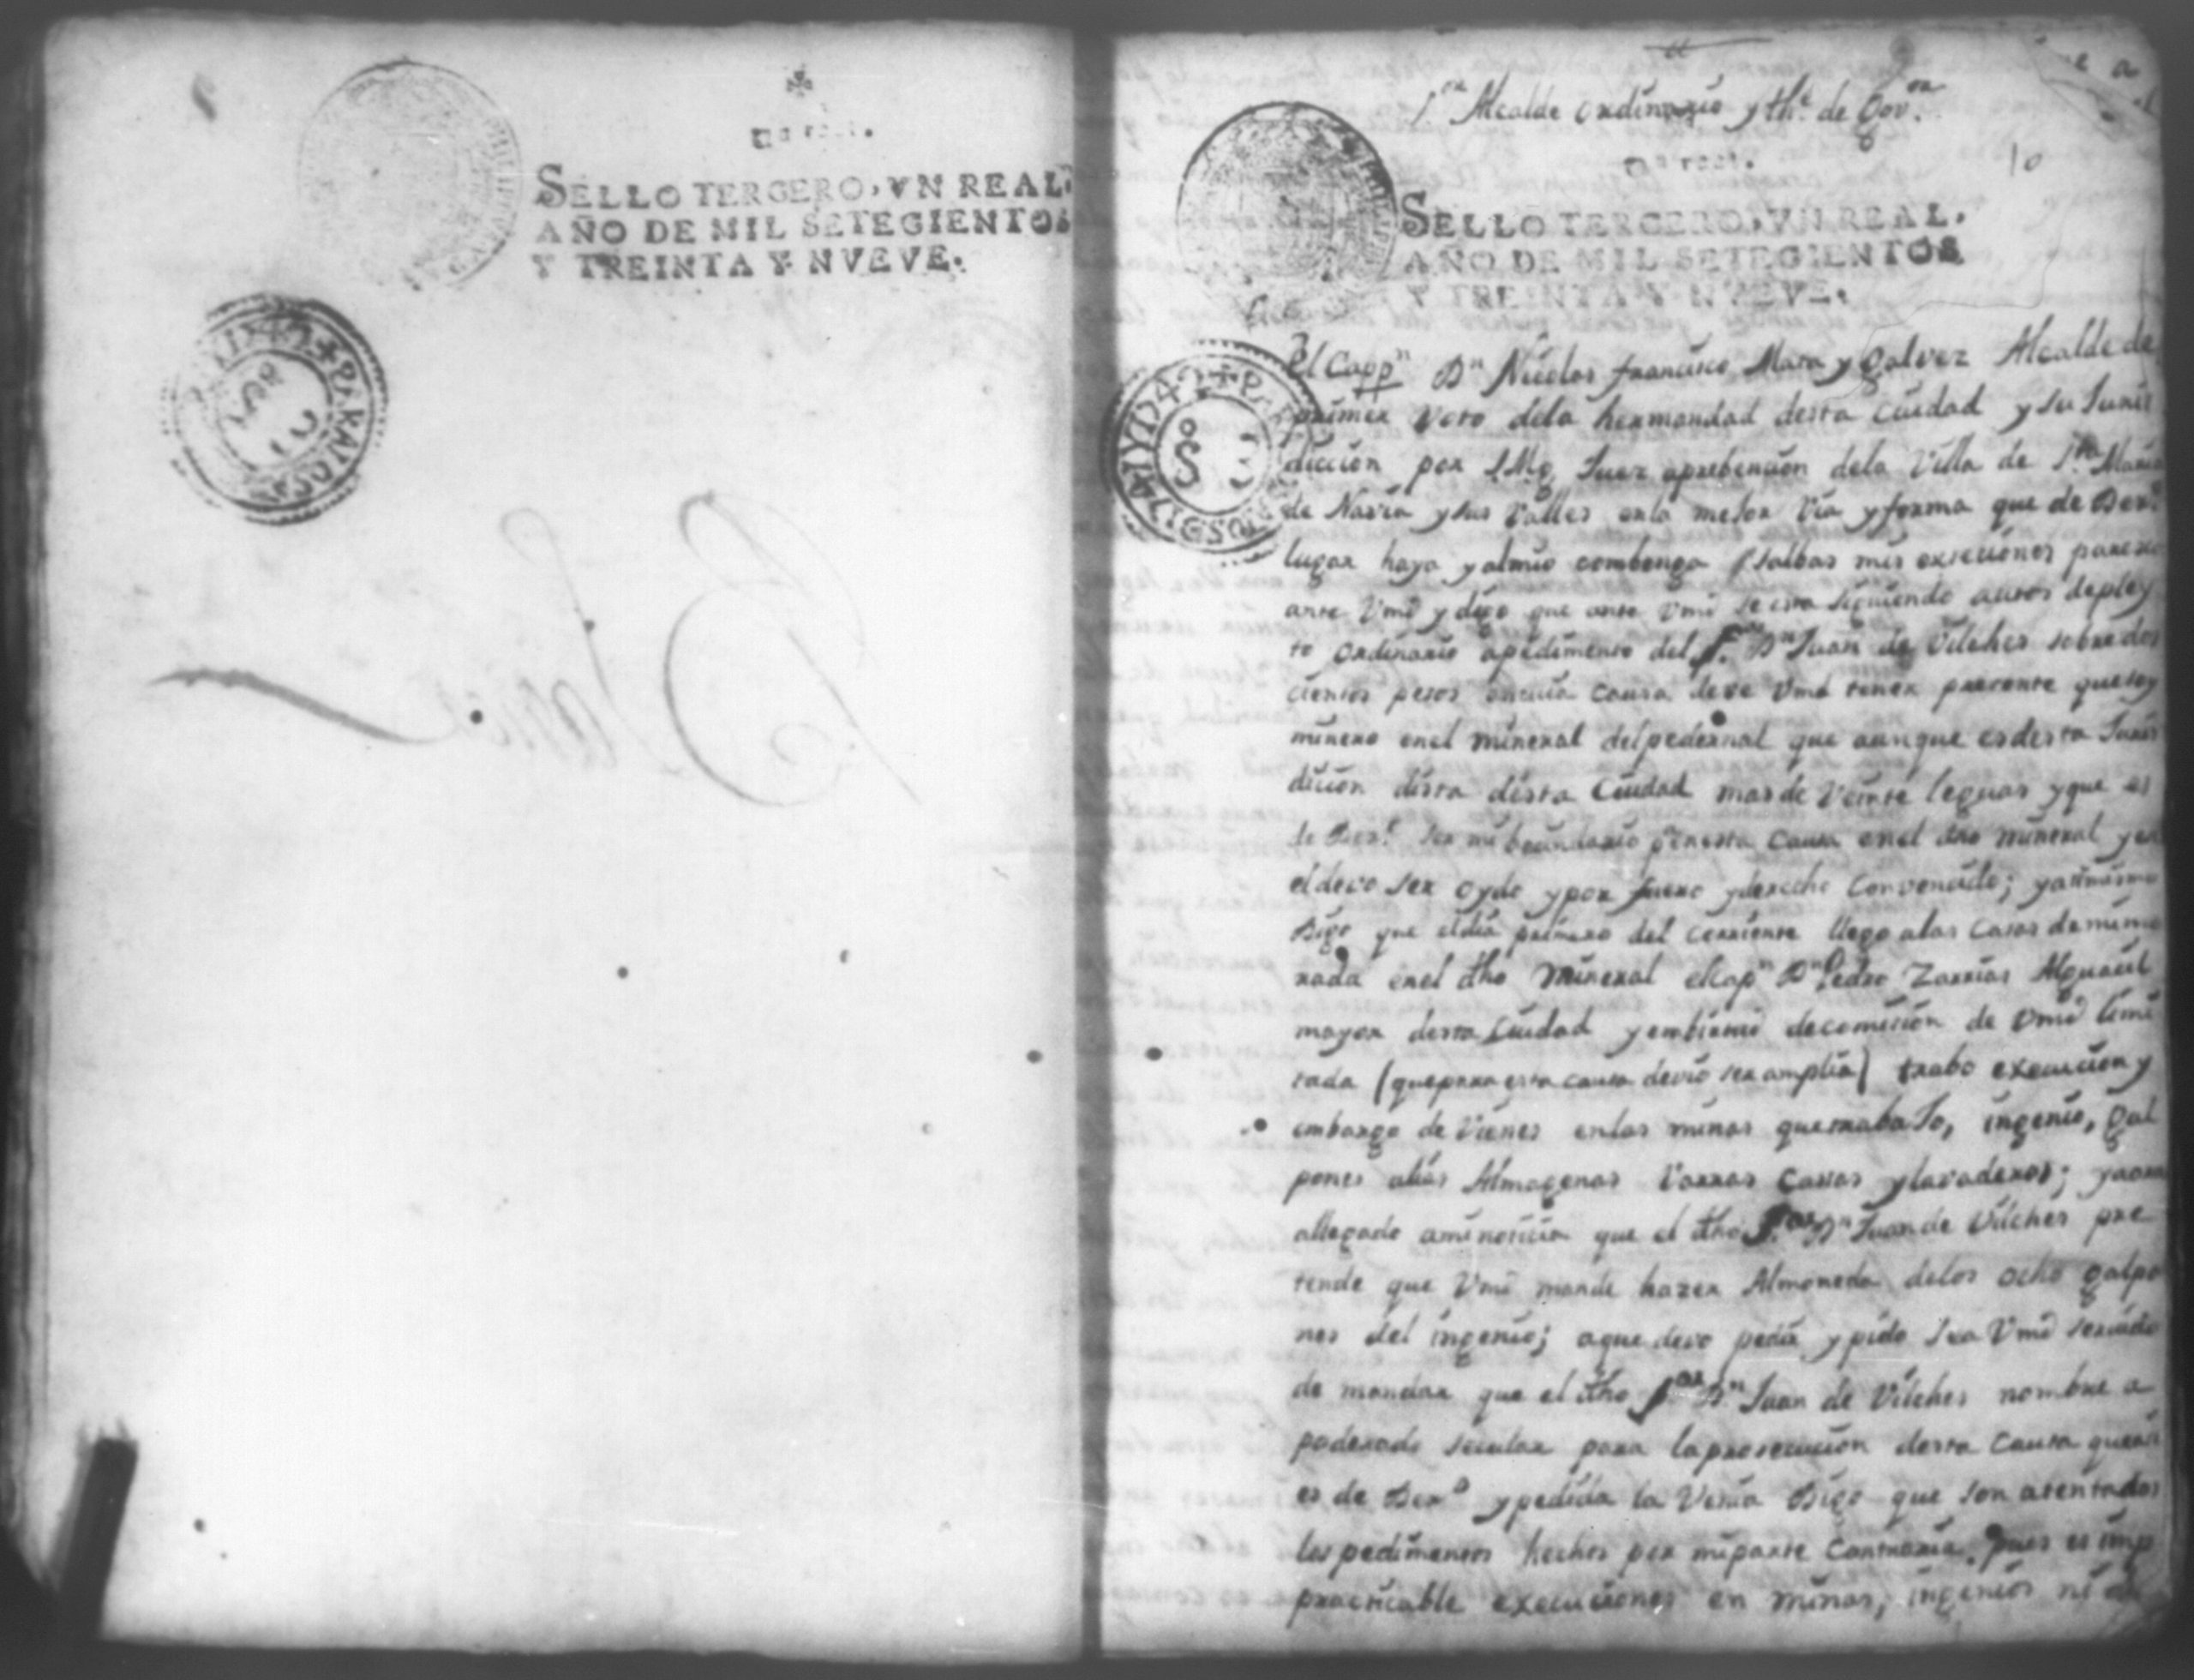 SELLO TERCERO, VN REAL,
AÑO DE MIL SETECIENTOS
Y TREINTA Y NVEVE.
PARA LOS A.S D 41 Y D 42
Blanco
S.or Alcalde ordinario y th.e de Gov.or
10
SELLO TERCERO, VN REAL,
AÑO DE MIL SETECIENTOS
Y TREINTA Y NVEVE.
El Capp.n D.n Nicolas francisco Mara y Galvez Alcalde de
primer Voto dela hermandad desta ciudad y su Juris
diccion por S.Mg. Juez aprebencion dela Villa de S.ta Maria
de Nasria y sus Valles enla mejor Via y forma que de Der.o
lugar haya y almio combenga (salbas mis exseciones paresco
ante Vmd y digo que ante Vmd se esta siguiendo autos depley
to ordinario apedimento del S.or D.n Juan de Vilches sobre dos
cientos pesos encuia causa deve Vmd tener precente que soy
minero enel mineral delpedernal que aunque es desta Juris
dicion dista desta Ciudad mas de Veinte leguas y que es
de Der.o ser mi p.a esta causa enel dho mineral y en
el devo ser oydo y por fuero y derecho Convencido; y asimismo
Digo que eldia primero del corriente llego alas casas de mi mo
rada enel dho Mineral elCap.n D.n Pedro Zarrias Alguacil
mayor desta Ciudad y decomicion de Vmd limi
tada (quepara esta causa devio ser amplia) trabo execucion y
embargo de Vienes enlas minas que trabaJo, ingenio, gal
pones alias Almagenas Varras Cassas y lavaderos; y aora
allegado aminoticia que el dho S.or D.n Juan de Vilches pre
tende que Vmd mande hazer Almoneda delos ocho galpo
nes del ingenio; aque devo pedir y pido sea Vmd servido
de mandar que el dho S.or D.n Juan de Vilches nombre a
poderado secular para laprosecucion desta Causa que asi
es de Der.o y pedida la Venia Digo que son atentados
los pedimentos hechos por miparte Contraria, pues es imp
practicable execuciones en minas, ingenios ni